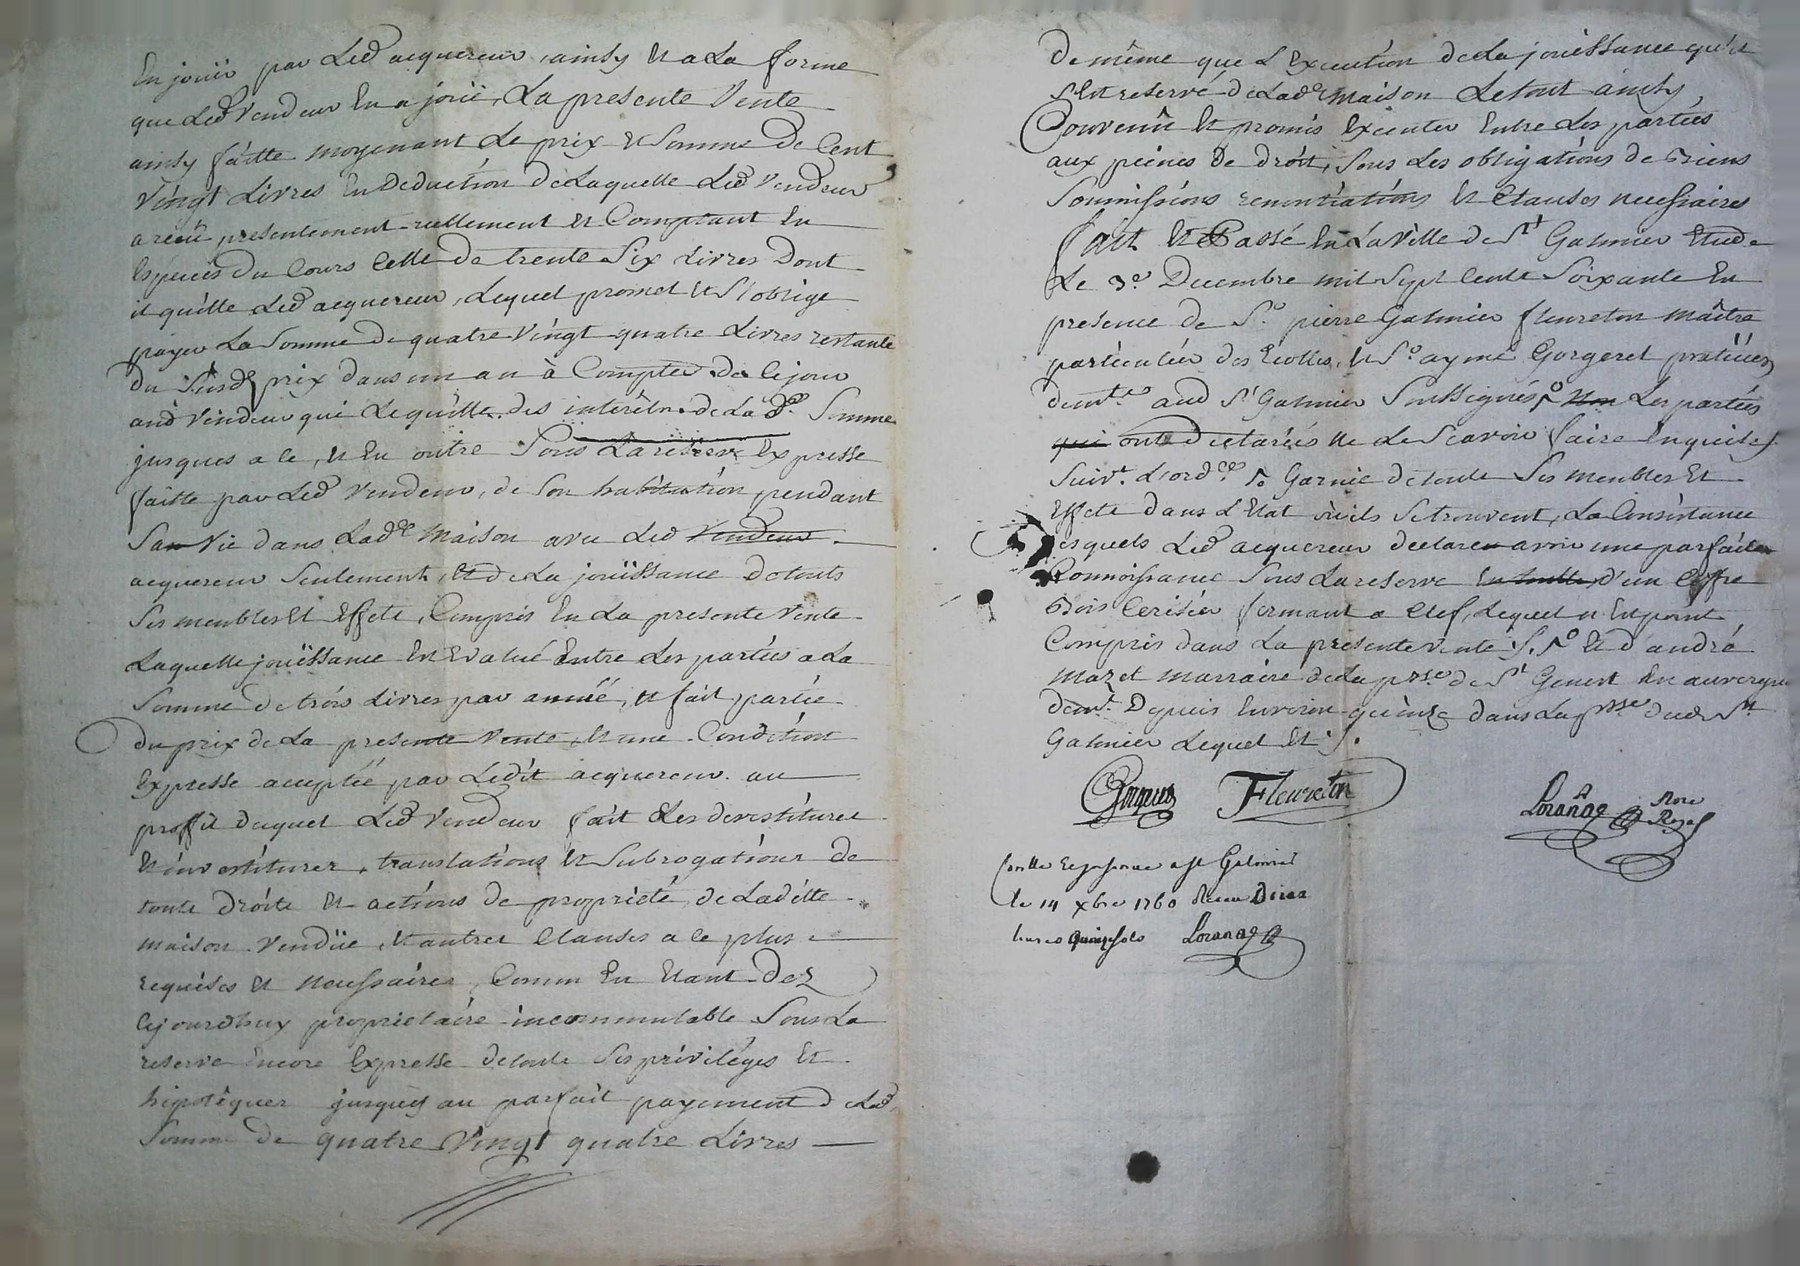 En jouir par Led acquereur, ainsy et a La forme
que Led Vendeur En a joüi, La presente Vente
ainsy faitte moyenant Le prix et Somme De Cent
Vingt Livres En Deduction De Laquelle Led Vendeur
a reçû presentement reellement et Comptant En
Especes Du Cours Celle De trente Six Livres Dont
il quitte Led acquereur, Lequel promet et S'oblige
payer La Somme De quatre Vingt quatre Livres restante
Du Susd prix dans un an à Compter De Ce jour
aud Vendeur qui Le quitte des interêts De La de. Somme
jusques a ce, et En outre Sous La reserve Expresse
faitte par Led Vendeur, de Son habitation pendant
Sa Vie dans Lade Maison avec Led Vendeur
acquereur Seulement, et De La joüissance De touts
Ses meubles Et Effets, Compris En La presente Vente
Laquelle joüissance Est Evalué Entre Les parties a La
Somme De trois Livres par année, et fait partie
Du prix De La presente Vente, et une Condition
Expresse acceptée par Ledit acquereur. au
proffit Duquel Led Vendeur fait Les devestitures
et investitures, translations et Subrogations De
touts Droits et actions De proprieté, De Laditte
maison Vendüe, et autres Clauses a ce plus
requises et Necessaires, Comm En Etant Dez
Cejourdhuy proprietaire incommutable Sous La
reserve Encore Expresse De touts Ses privileges Et
hipotêques jusques au parfait payement De Lad
Somme De quatre Vingt quatre Livres
De même que L'Execution De La joüissance qu'il
s'est reservé De Lade Maison Le tout ainsy
Convenû Et promis Executer Entre Les parties
aux peines De droit, Sous Les obligations De Biens
Soumissions renontiations et Clauses necessaires
fait Et Passé En La Ville De St Galmier Etude
Le 3e. Decembre mil Sept Cents Soixante En
presence De Sr. pierre Galmier fleureton Maître
particulier Des Ecolles, et Sr aymé Gorgeret praticien
demts. aud St Galmier Soussignés Non Les parties
qui ont Declarées Ne Le Scavoir faire Enquises
Suivt. L'ordce Garnie De touts Ses meubles Et
Effets Dans L'Etat où ils Se trouvent, La Consistance
Desquels Led acquereur declare avoir une parfaite
Connoissance Sous La reserve d'un Coffre
Bois Cerisier fermant a Clef, Lequel n'Est point
Compris dans La presente Vente S. Et d'andré
Mazet Marraire De La psse. De St Genest En auvergne
demt. Depuis Environ quinze Dans La psse Dud St
Galmier Lequel Et S.
Gorgeret Fleureton
Lorange Nore Royal
a St Galmier
le 14 xbre 1760
Lorange